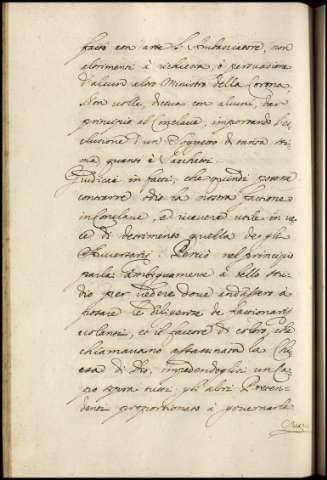 fatto con arte l'Ambasciatore, non
altrimenti à richiesta, ò persuasione
d'alcun altro Ministro della Corona.
Non volle, diceva con alcuni, dar
principio al Conclave, importando l'es
clusione d'un Soggetto di tanta sti
ma quanto è Sacchetti.
Giudicai in fatti, che quindi potesse
contrarre odio la nostra fattione
in Conclave, e ricevere utile in ve
ce di detrimento quella de gli
Avversarij. Perciò nel principio
parlai ambiguamente à bello stu
dio per vedere dove andassero à
parare le diligenze de fattionarij
volanti, et il favore di coloro, che
chiamavano assassinata la Chi
esa di Dio, impedendogli un Ca
po sopra tutti gli altri Preten
denti proportionato à governarla